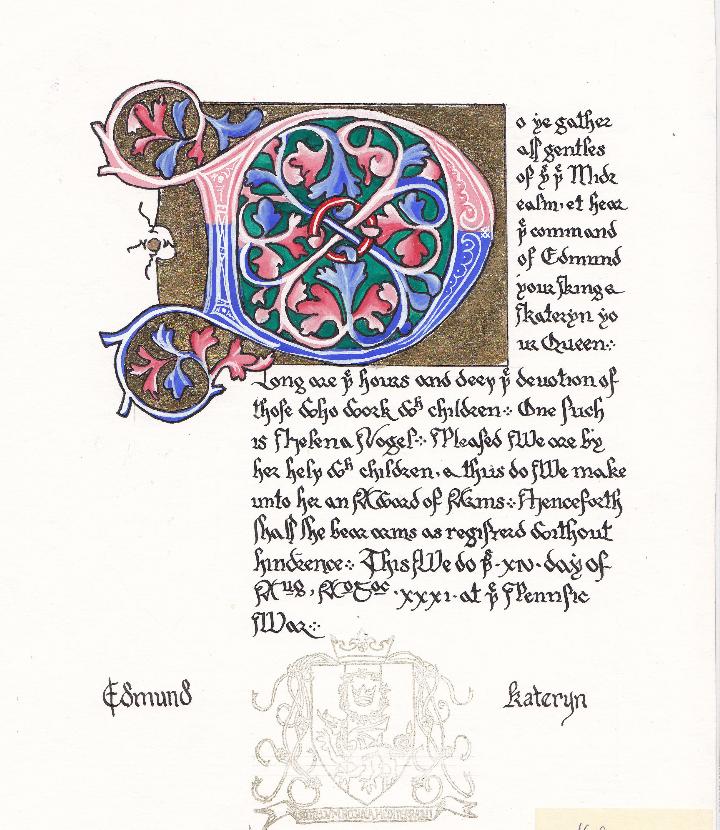 Do ye gather
all gentles
of yͤ yͤ Midr
ealm· et hear
yͤ command
of Edmund
your King &
Kateryn yo
ur Queen:·
Long are yͤ hours and deep yͤ devotion of
those who work wͪ children:· One such
is Helena Vogel:· Pleased We are by
her help wͪ children· & thus do We make
unto her an Award of Arms:· Henceforth
shall she bear arms as registerd without
hindrence:· This We do yͤ ·xiv· day of
Aug, AoSoc ·xxxi· at yͤ Pennsic
War:·
Edmund
Kateryn